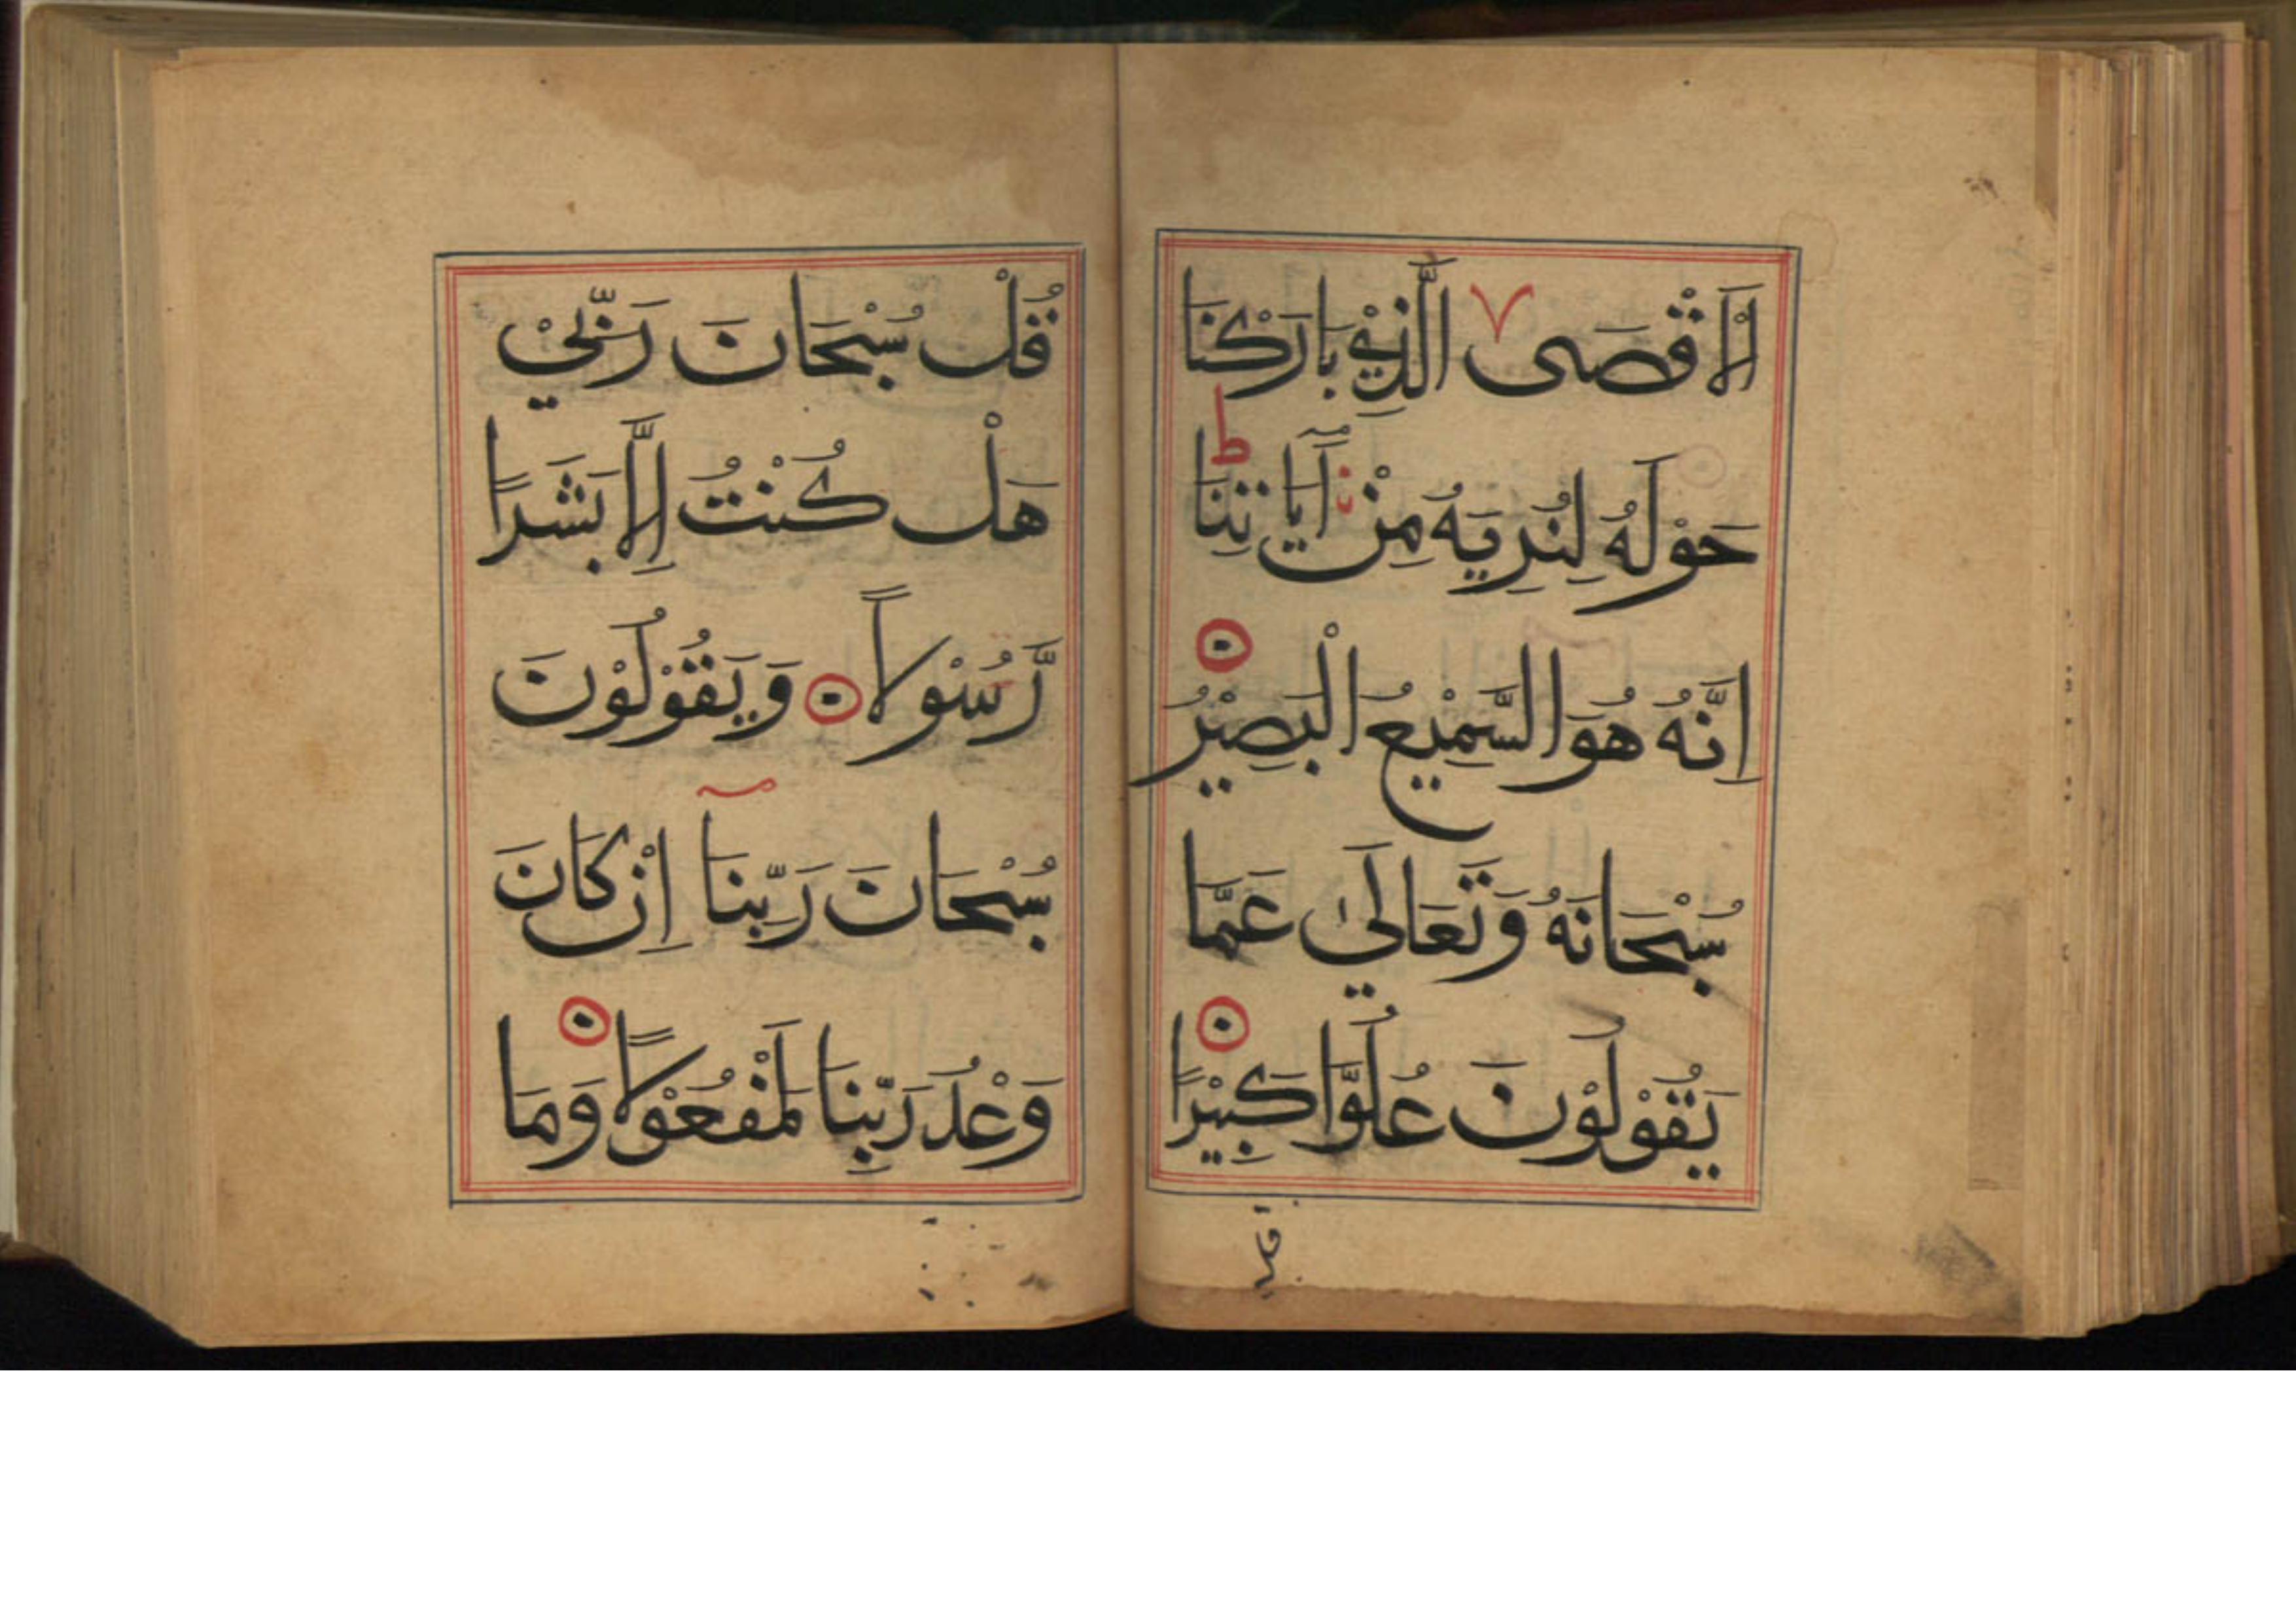 لْاَقْصَى الَّذِيْ بَارَكْنَا
حَوْلَهُ لِنُرِيَهُ مِنْ آيَاتِنَا
اِنَّهُ هُوَ السَّمِيْعُ الْبَصِيْرُ
سُبْحَانَهُ وَتَعَالَىٰ عَمَّا
يَقُوْلُوْنَ عُلُوًّا كَبِيْرًا
قل
قُلْ سُبْحَانَ رَبِّيْ
هَلْ كُنْتُ اِلَّا بَشَرًا
رَّسُوْلًا وَيَقُوْلُوْنَ
سُبْحَانَ رَبِّنَا اِنْ كَانَ
وَعْدُ رَبِّنَا لَمَفْعُوْلًا وَمَا